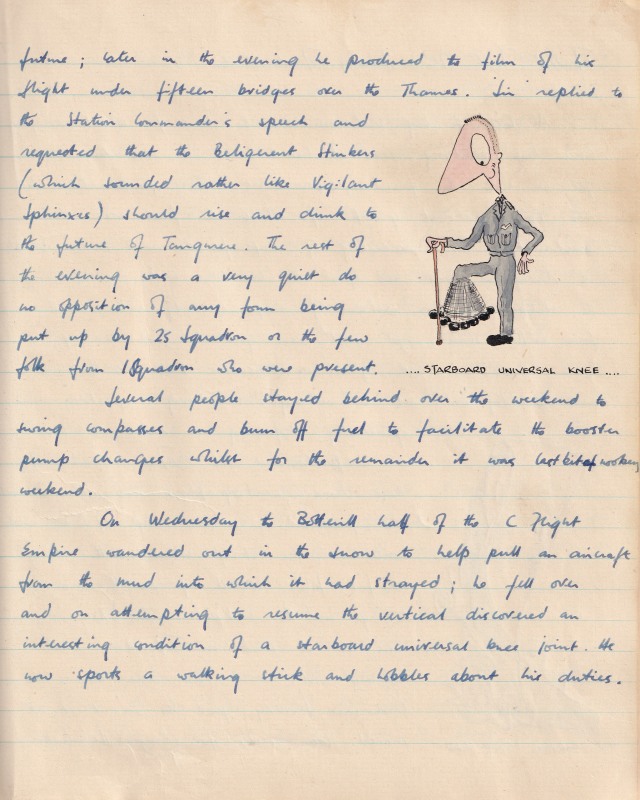 future; later in the evening he produced the film of his
flight under fifteen bridges over the Thames. 'Sir' replied to
the Station Commander's speech and
requested that the Beligerent Stinkers
(which sounded rather like Vigilant
Sphinxes) should rise and drink to
the future of Tangmere. The rest of
the evening was a very quiet do
no opposition of any form being
put up by 25 Squadron or the few
folk from 1 Squadron who were present.
.... STARBOARD UNIVERSAL KNEE ....
Several people stayed behind over the weekend to
swing compasses and burn off fuel to facilitate the booster
pump changes whilst for the remainder it was last bit of
weekend.
On Wednesday the Botterill half of the C Flight
Empire wandered out in the snow to help pull an aircraft
from the mud into which it had strayed; he fell over
and on attempting to resume the vertical discovered an
interesting condition of a starboard universal knee joint. He
now sports a walking stick and hobbles about his duties.